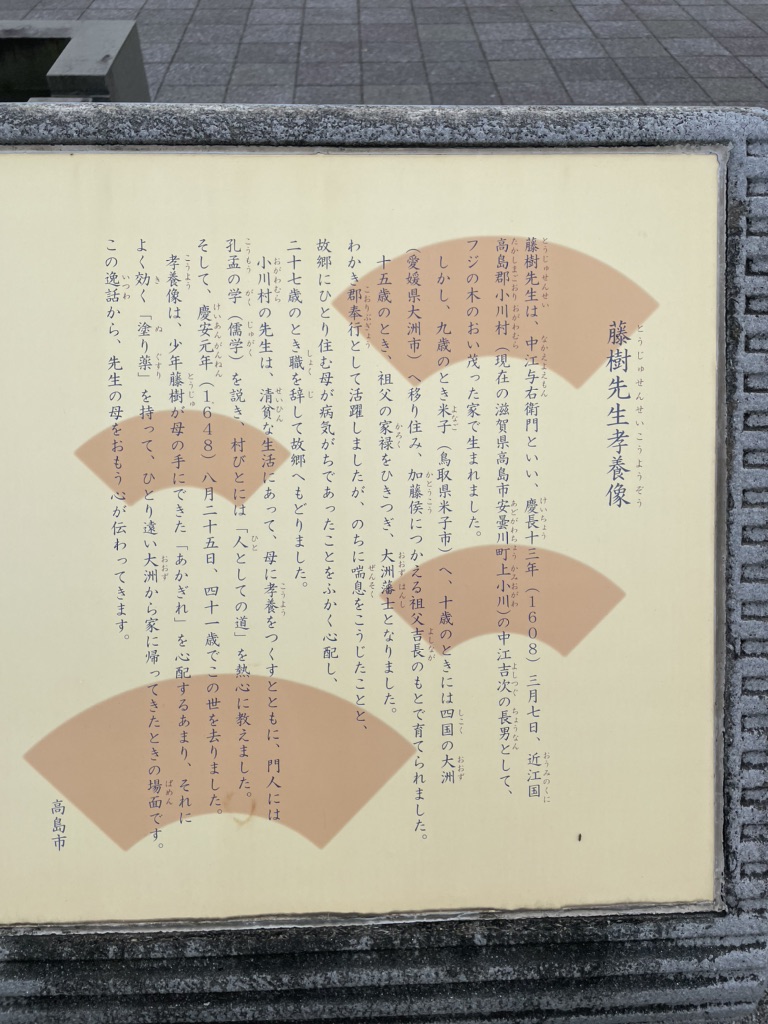 藤樹先生孝養像
藤樹先生は、中江与右衛門といい、慶長十三年（1608）三月七日、近江国
高島郡小川村（現在の滋賀県高島市安曇川町上小川）の中江吉次の長男として、
フジの木のおい茂った家で生まれました。
しかし、九歳のとき米子（鳥取県米子市）へ、十歳のときには四国の大洲
（愛媛県大洲市）へ移り住み、加藤侯につかえる祖父吉長のもとで育てられました。
十五歳のとき、祖父の家禄をひきつぎ、大洲藩士となりました。
わかき郡奉行として活躍しましたが、のちに喘息をこうじたことと、
故郷にひとり住む母が病気がちであったことをふかく心配し、
二十七歳のとき職を辞して故郷へもどりました。
小川村の先生は、清貧な生活にあって、母に孝養をつくすとともに、門人には
孔孟の学（儒学）を説き、村びとには「人としての道」を熱心に教えました。
そして、慶安元年（1648）八月二十五日、四十一歳でこの世を去りました。
孝養像は、少年藤樹が母の手にできた「あかぎれ」を心配するあまり、それに
よく効く「塗り薬」を持って、ひとり遠い大洲から家に帰ってきたときの場面です。
この逸話から、先生の母をおもう心が伝わってきます。
高島市